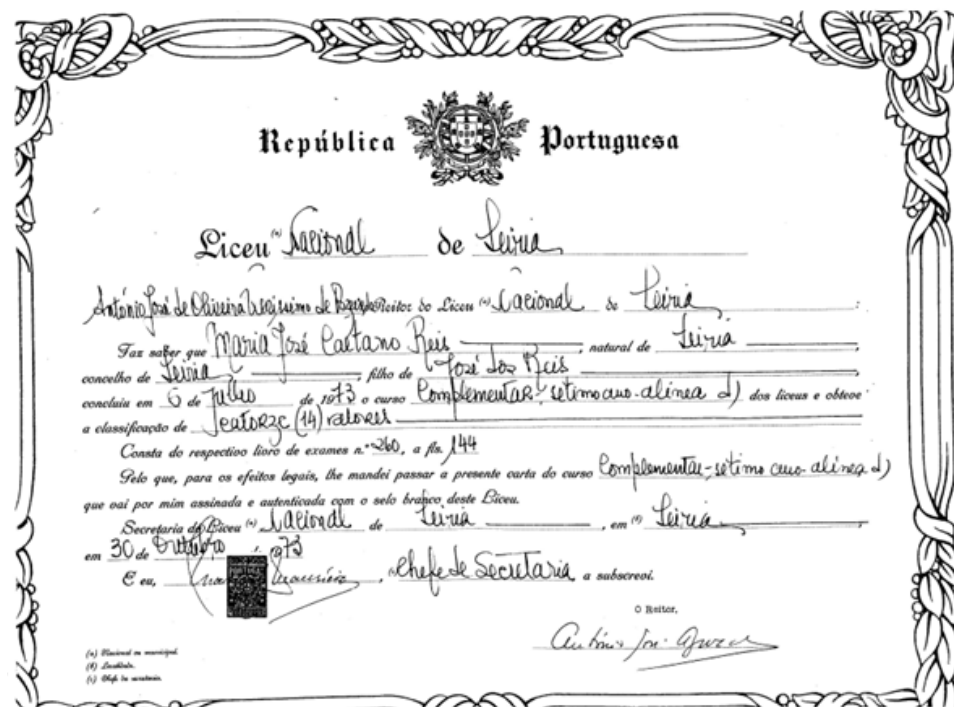 República Portuguesa
Liceu (a) Nacional de Leiria
António José de Oliveira de Reitor do Liceu (a) Nacional de Leiria :
Faz saber que Maria José Caetano Reis, natural de Leiria,
concelho de Leiria, filho de José dos Reis,
concluiu em 6 de Julho de 1973 o curso Complementar-sétimo ano-alínea d) dos liceus e obteve
a classificação de catorze (14) valores
Consta do respectivo livro de exames n.º 260, a fls. 144
Pelo que, para os efeitos legais, lhe mandei passar a presente carta do curso Complementar-sétimo ano-alínea d)
que vai por mim assinada e autenticada com o selo branco deste Liceu.
Secretaria do Liceu (a) Nacional de Leiria, em (b) Leiria,
em 30 de Outubro 1973
E eu, , Chefe de Secretaria a subscrevi.
O Reitor,
António José
(a) Nacional ou municipal.
(b) Localidade.
(c) Chefe da secretaria.